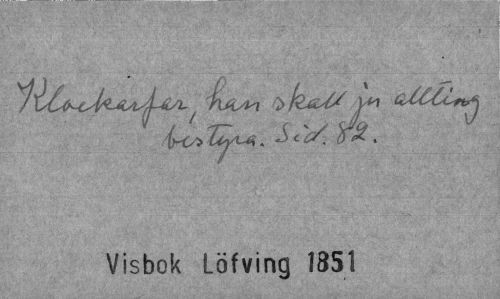 Klockarfar, han skall ju allting
bestyra. Sid. 82.
Visbok Löfving 1851